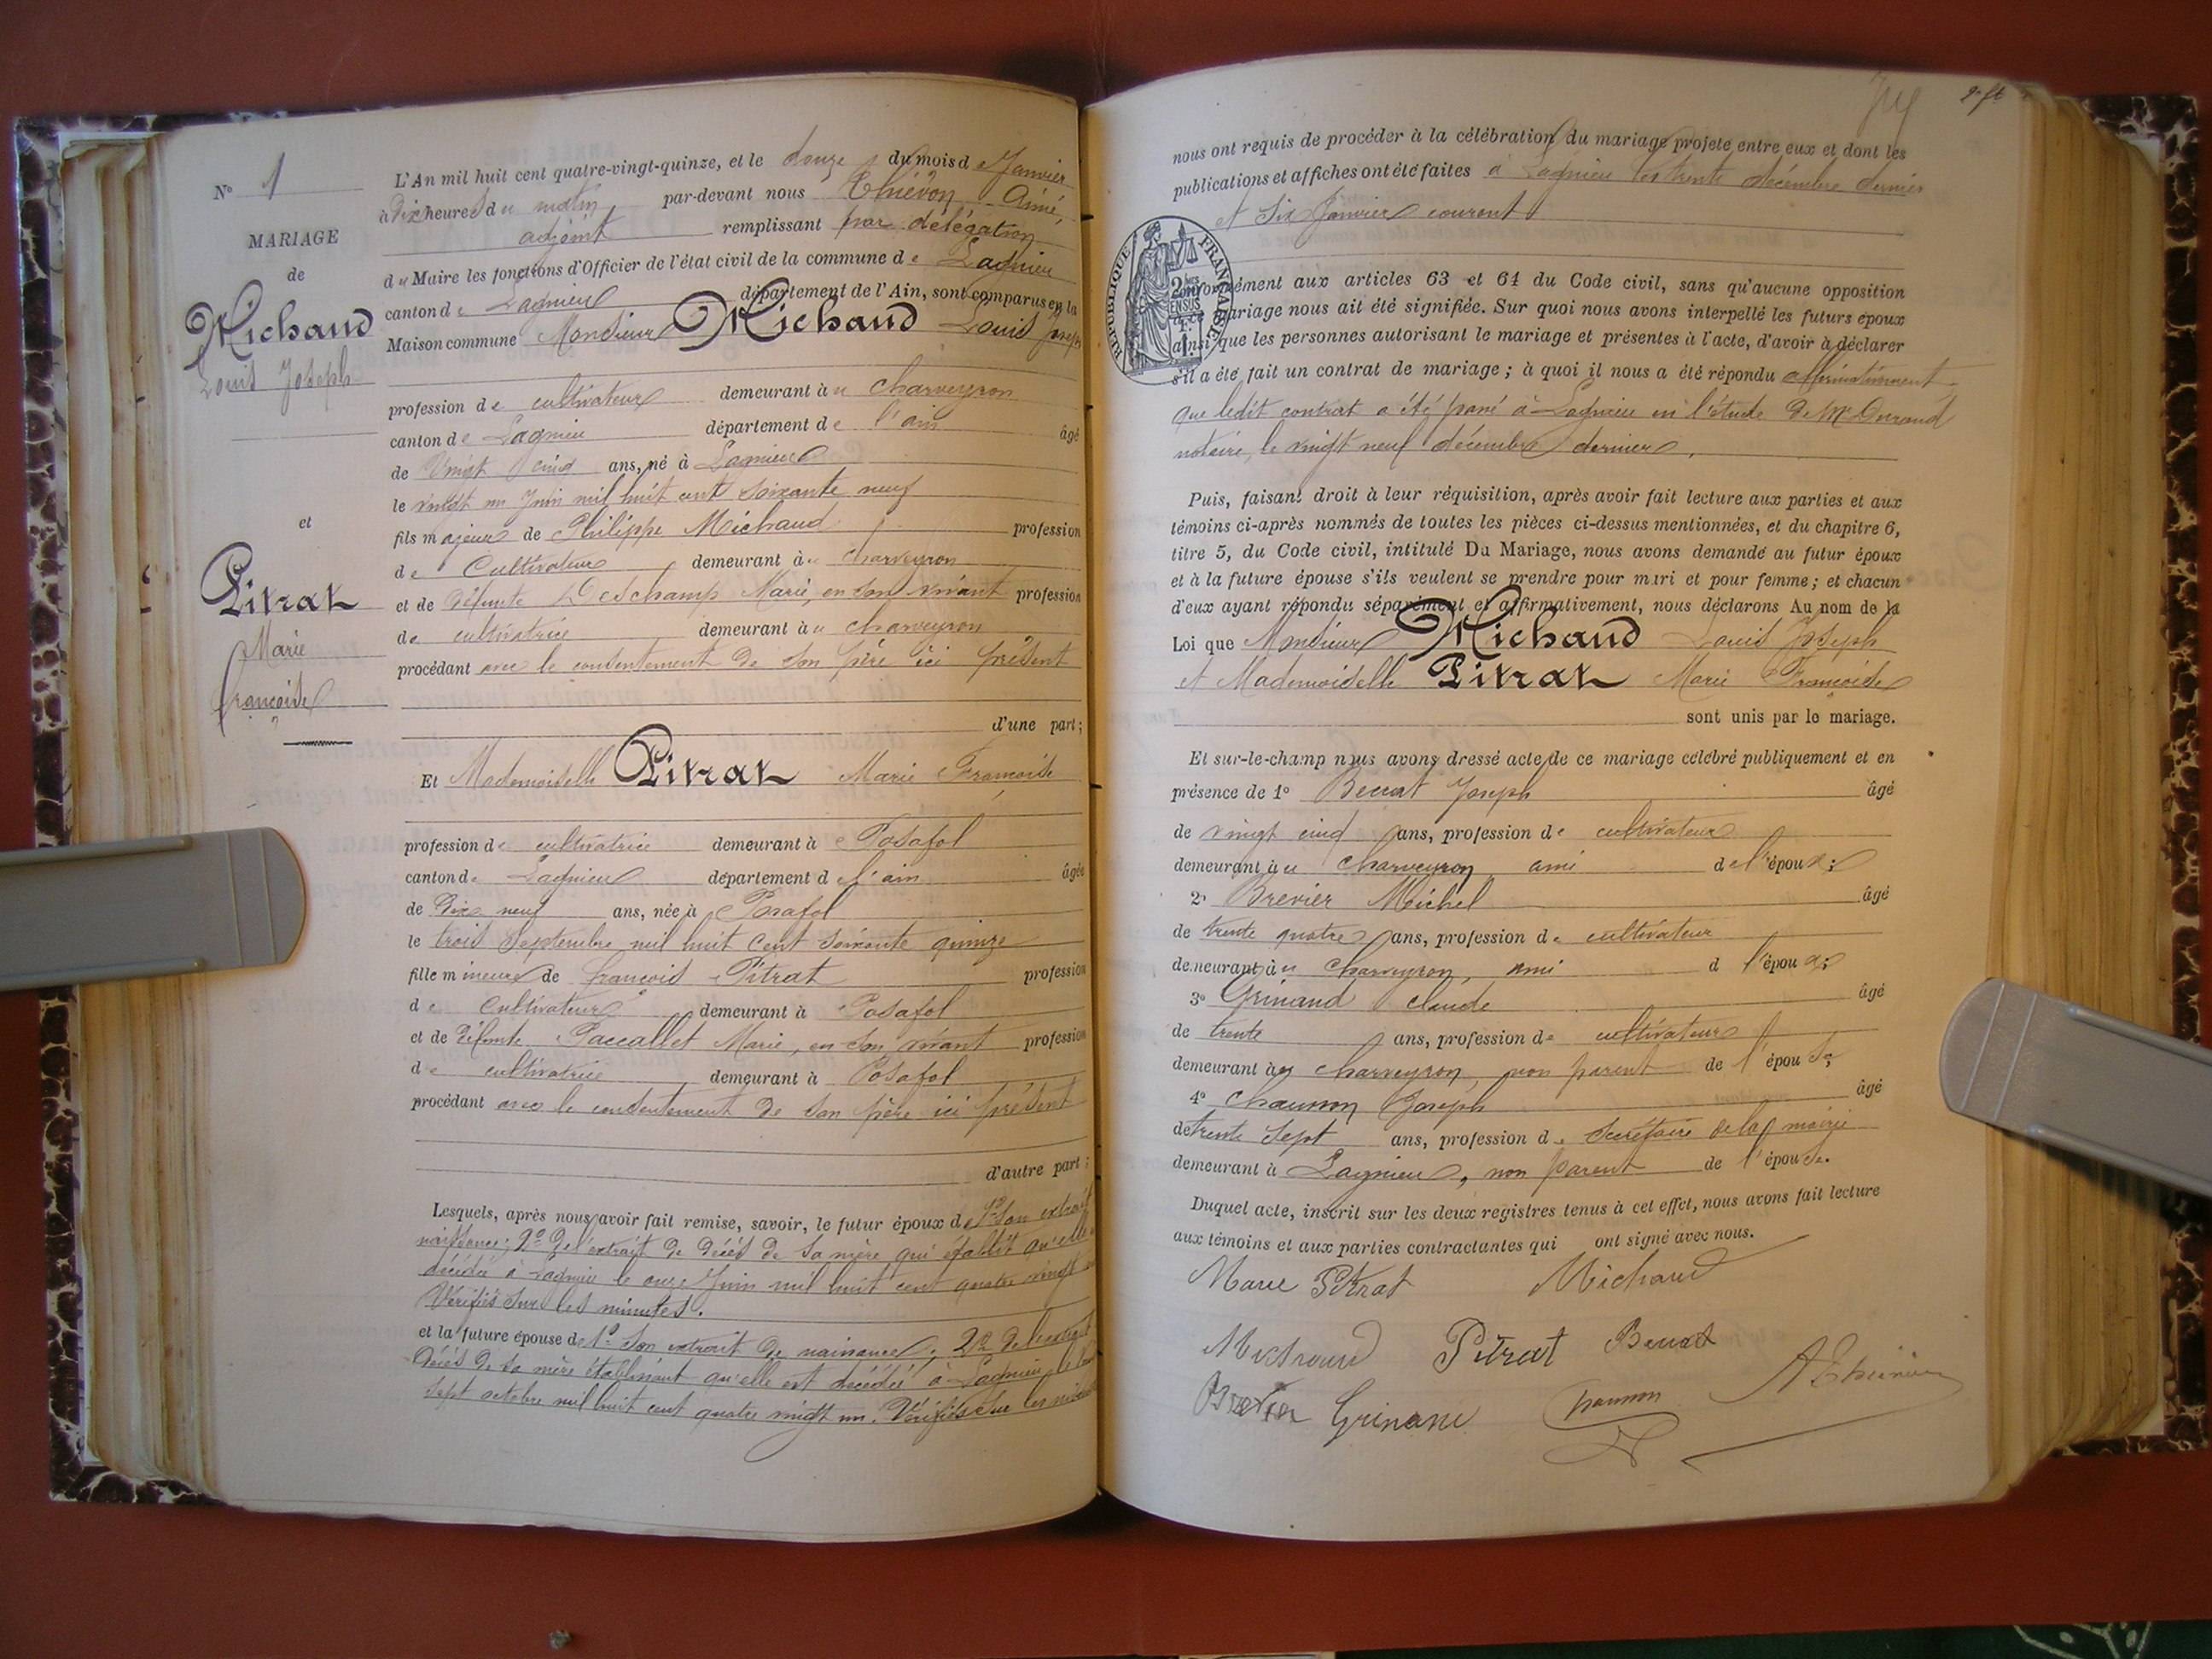 N° 1
MARIAGE
de
Michaud
Louis Joseph
et
Pitrat
Marie
françoise
L'An mil huit cent quatre-vingt-quinze, et le douze du mois de Janvier
à Dix heures du matin par-devant nous Thiévon Aimé,
adjoint remplissant par délégation
du Maire les fonctions d'Officier de l'état civil de la commune de Lagnieu
canton de Lagnieu département de l'Ain, sont comparus en la
Maison commune Monsieur Michaud Louis Joseph
profession de cultivateur demeurant àu charveyron
canton de Lagnieu département de l'ain âgé
de Vingt cinq ans, né à Lagnieu
le vingt un Juin mil huit cent soixante neuf
fils majeur de Philippe Michaud profession
de Cultivateur demeurant àu charveyron
et de Défunte Deschamp Marie, en son vivant profession
de cultivatrice demeurant àu charveyron
procédant avec le consentement de son père ici présent
d'une part;
Et Mademoiselle Pitrat Marie Françoise
profession de cultivatrice demeurant à Posafol
canton de Lagnieu département de l'ain âgée
de Dix neuf ans, née à Posafol
le trois Septembre mil huit Cent soixante quinze
fille mineure de françois Pitrat profession
de Cultivateur demeurant à Posafol
et de Défunte Paccallet Marie, en son vivant profession
de cultivatrice demeurant à Posafol
procédant avec le consentement de son père ici présent
d'autre part;
Lesquels, après nous avoir fait remise, savoir, le futur époux de 1° Son extrait
naissance; 2° De l'extrait de décès de sa mère qui établit qu'elle
décédée à Lagnieu le onze Juin mil huit cent quatre vingt
Vérifiés sur les minutes.
et la future épouse de 1° Son extrait de naissance; 2° De l'extrait
Décès de sa mère établissant qu'elle est décédée à Lagnieu le
sept octobre mil huit cent quatre vingt un. Vérifiés sur les
nous ont requis de procéder à la célébration du mariage projeté entre eux et dont les
publications et affiches ont été faites à Lagnieu les trente décembre dernier
et Six Janvier courant
RÉPUBLIQUE FRANÇAISE
Conformément aux articles 63 et 64 du Code civil, sans qu'aucune opposition
mariage nous ait été signifiée. Sur quoi nous avons interpellé les futurs époux
ainsi que les personnes autorisant le mariage et présentes à l'acte, d'avoir à déclarer
s'il a été fait un contrat de mariage; à quoi il nous a été répondu affirmativement
que ledit contrat a été passé à Lagnieu en l'étude de Me Durand
notaire, le vingt neuf décembre dernier.
Puis, faisant droit à leur réquisition, après avoir fait lecture aux parties et aux
témoins ci-après nommés de toutes les pièces ci-dessus mentionnées, et du chapitre 6,
titre 5, du Code civil, intitulé Du Mariage, nous avons demandé au futur époux
et à la future épouse s'ils veulent se prendre pour mari et pour femme; et chacun
d'eux ayant répondu séparément et affirmativement, nous déclarons Au nom de la
Loi que Monsieur Michaud Louis Joseph
et Mademoiselle Pitrat Marie Françoise
sont unis par le mariage.
Et sur-le-champ nous avons dressé acte de ce mariage célébré publiquement et en
présence de 1° Joseph âgé
de vingt cinq ans, profession de cultivateur
demeurant àu charveyron ami de l'époux;
2° Brevier Michel âgé
de trente quatre ans, profession de cultivateur
demeurant àu charveyron, ami d l'époux;
3° Grinand claude âgé
de trente ans, profession de cultivateur
demeurant àu charveyron, non parent de l'épouse;
4° Chaumon Joseph âgé
de trente sept ans, profession de Secrétaire de la mairie
demeurant à Lagnieu, non parent de l'épouse.
Duquel acte, inscrit sur les deux registres tenus à cet effet, nous avons fait lecture
aux témoins et aux parties contractantes qui ont signé avec nous.
Marie Pitrat Michaud
Michaud Pitrat
Brevier Grinand Chaumon